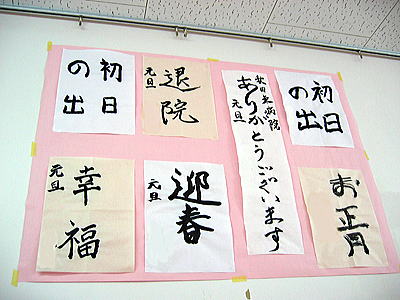 初日
の出
退院
元旦
秋田東病院
ありがとうございます
元旦
初日
の出
幸福
元旦
迎春
元旦
お正月